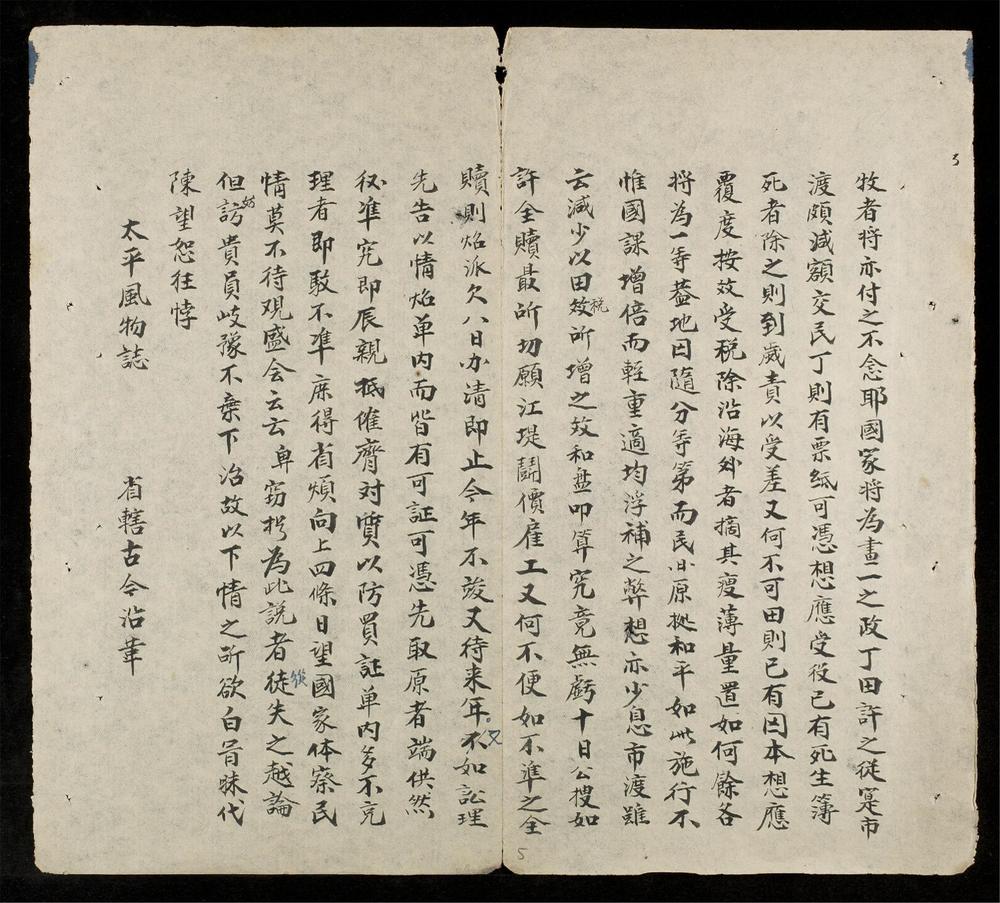 牧者将亦付之不念耶國家将為畫一之政丁田許之従寔市
渡頗減額交民丁則有票紙可憑想應受役已有死生簿
死者除之則到歲責以受差又何不可田則已有因本想應
覆度按效受稅除沿海外者摘其瘦薄量置如何餘各
将為一等蓋地因隨分等第而民田原拠和平如此施行不
惟國課增倍而輕重適均浮補之弊想亦少息市渡雖
云減少以田稅效所增之效和盘叩算究竟無虧十日公搜如
許全贖最所切願江堤鬪價雇工又何不便如不準之全
贖則炤派欠八日办清即止今年不竣又待来年又不如訟理
先告以情炤单内而皆有可証可憑先取原者端供然
後准究即辰親抵催齊対質以防買証单内多不克
理者即敢不準庶得省煩向上四條日望國家体察民
情莫不待观盛会云云卑窃拟為此説者徒失之越論
但訪如貴員岐豫不棄下治故以下情之所欲白冒昧代
陳望恕狂悖
太平風物誌 省轄古今沿革
3
5